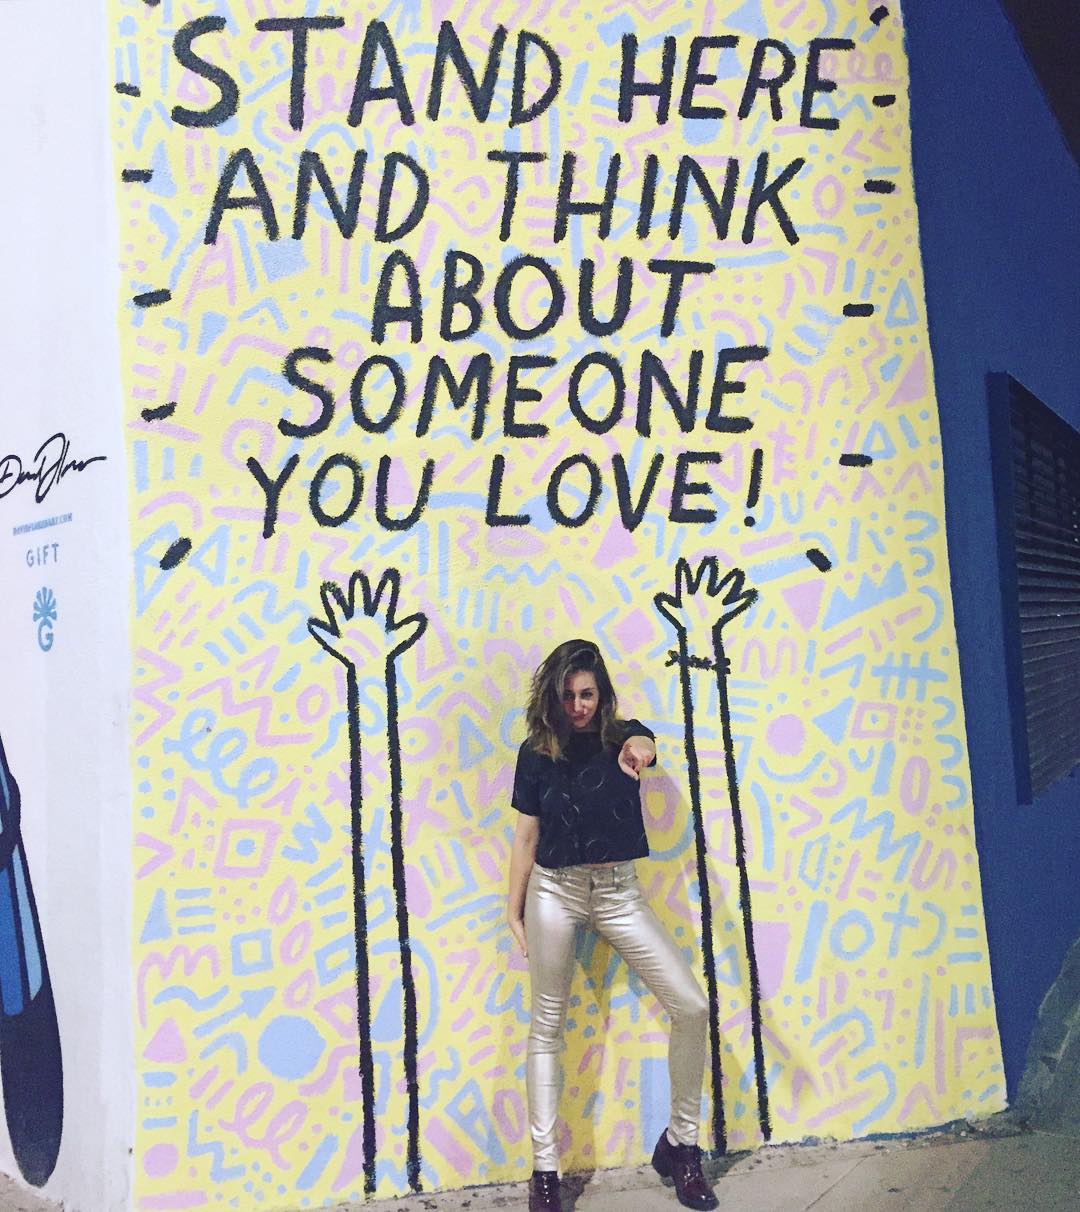 STAND HERE
AND THINK
ABOUT
SOMEONE
YOU LOVE!
GIFT
G